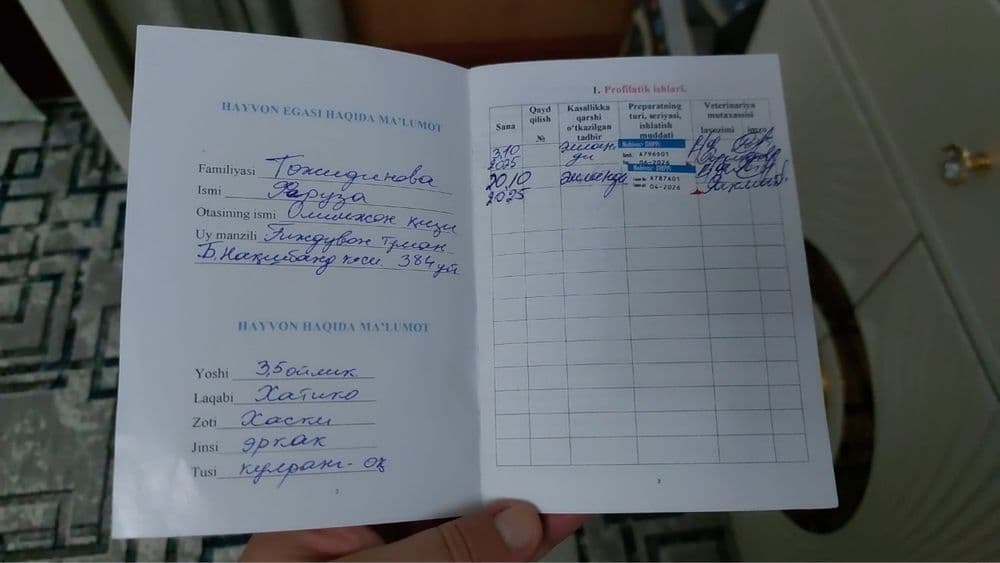 HAYVON EGASI HAQIDA MA'LUMOT
Familiyasi Тожидинова
Ismi Феруза
Otasining ismi Олимжон қизи
Uy manzili Ғиждувон туман
Б.Нақшбанд кўси 384 уй
HAYVON HAQIDA MA'LUMOT
Yoshi 3,5 ойлик
Laqabi Хатико
Zoti Хаски
Jinsi эркак
Tusi кулранг-оқ
2
1. Profilatik ishlari.
Sana
Qayd qilish №
Kasallikka qarshi o'tkazilgan tadbir
Preparatning turi, seriyasi, ishlatish muddati
Veterinariya mutaxassisi
lavozimi imzo
3.10 2025 эмланди A796601 06-2026
20.10 2025 эмланди A787601 04-2026
3